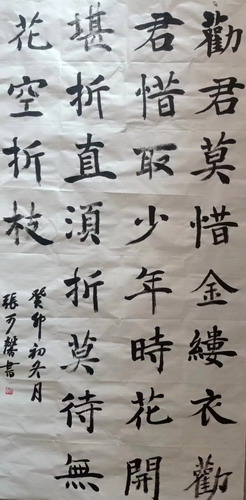 勸君莫惜金縷衣勸
君惜取少年時花開
堪折直須折莫待無
花空折枝
癸卯初冬月
張可馨書